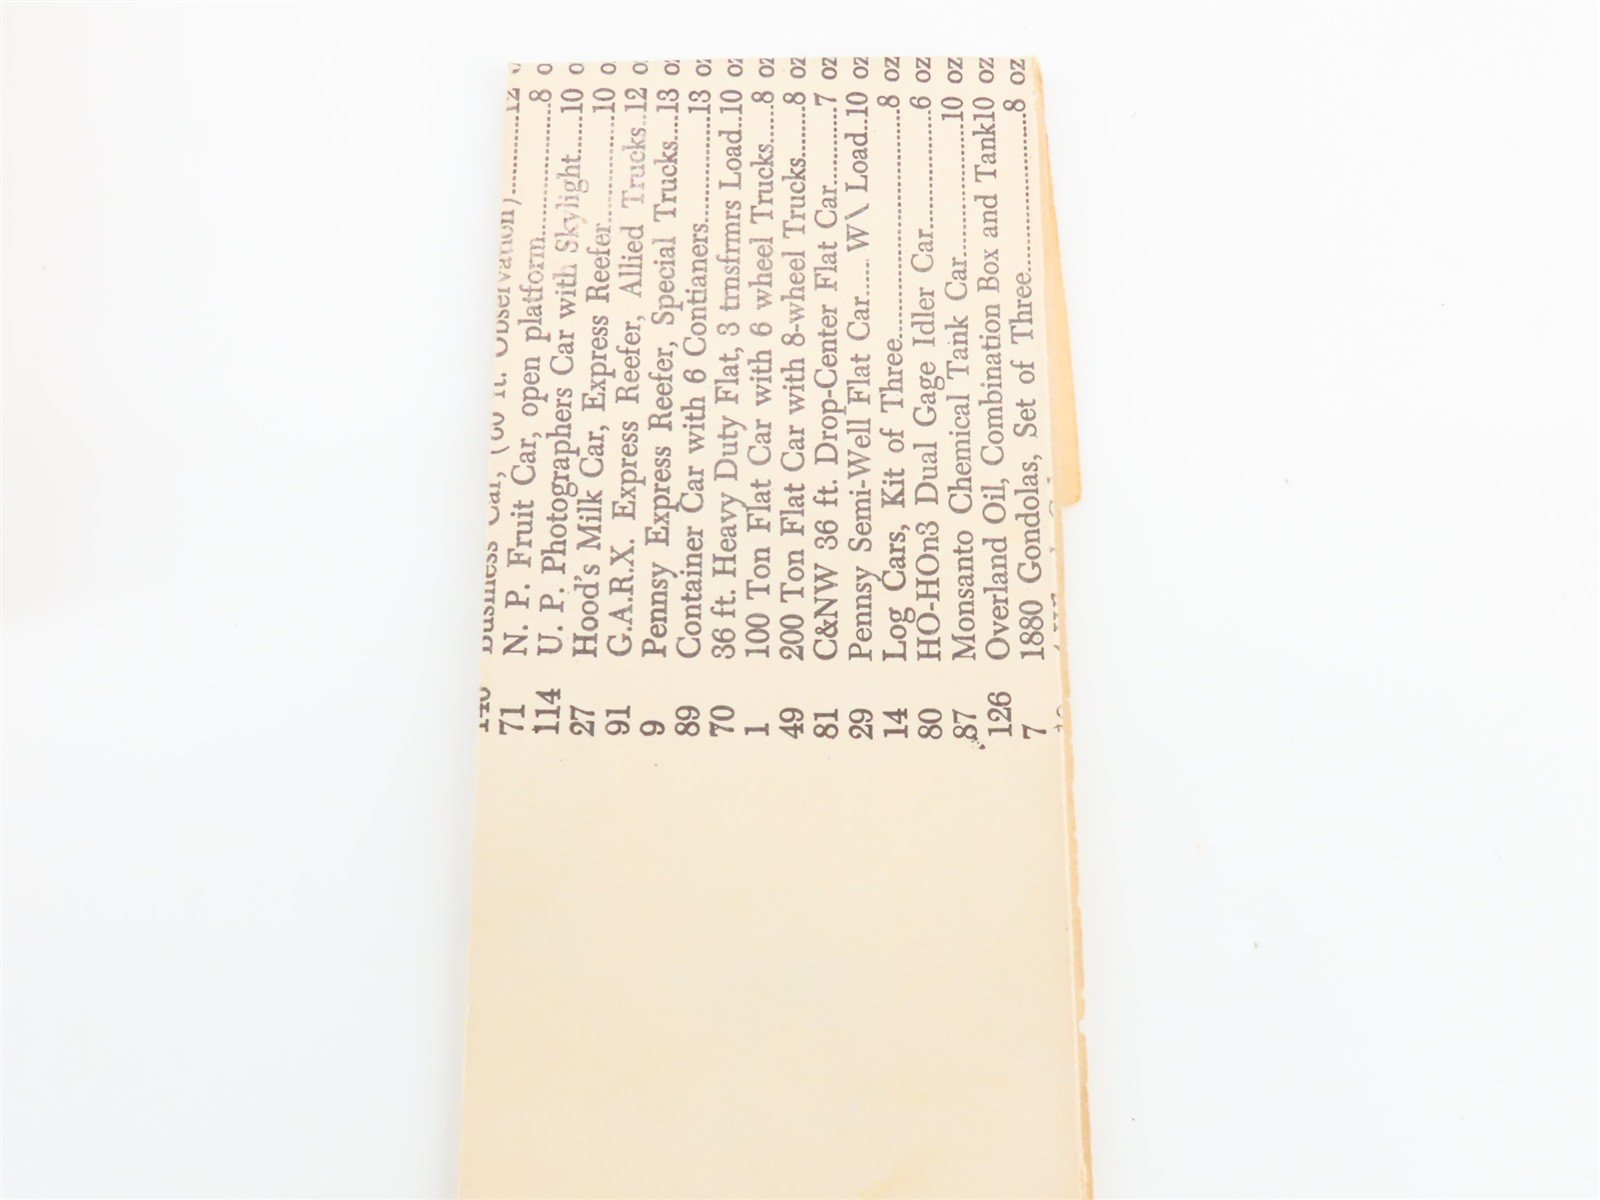 140 Business Car, (60 ft. Observation)..............12 o
71 N. P. Fruit Car, open platform..................8 o
114 U. P. Photographers Car with Skylight......10 o
27 Hood's Milk Car, Express Reefer..............10 o
91 G.A.R.X. Express Reefer, Allied Trucks..12 o
9 Pennsy Express Reefer, Special Trucks....13 o
89 Container Car with 6 Contianers..............13 oz
70 36 ft. Heavy Duty Flat, 3 trnsfrmrs Load..10 oz
1 100 Ton Flat Car with 6 wheel Trucks......8 oz
49 200 Ton Flat Car with 8-wheel Trucks.......8 oz
81 C&NW 36 ft. Drop-Center Flat Car..........7 oz
29 Pennsy Semi-Well Flat Car..... W\ Load..10 oz
14 Log Cars, Kit of Three................................8 oz
80 HO-HOn3 Dual Gage Idler Car..................6 oz
87 Monsanto Chemical Tank Car....................10 oz
126 Overland Oil, Combination Box and Tank10 oz
7 1880 Gondolas, Set of Three........................8 oz